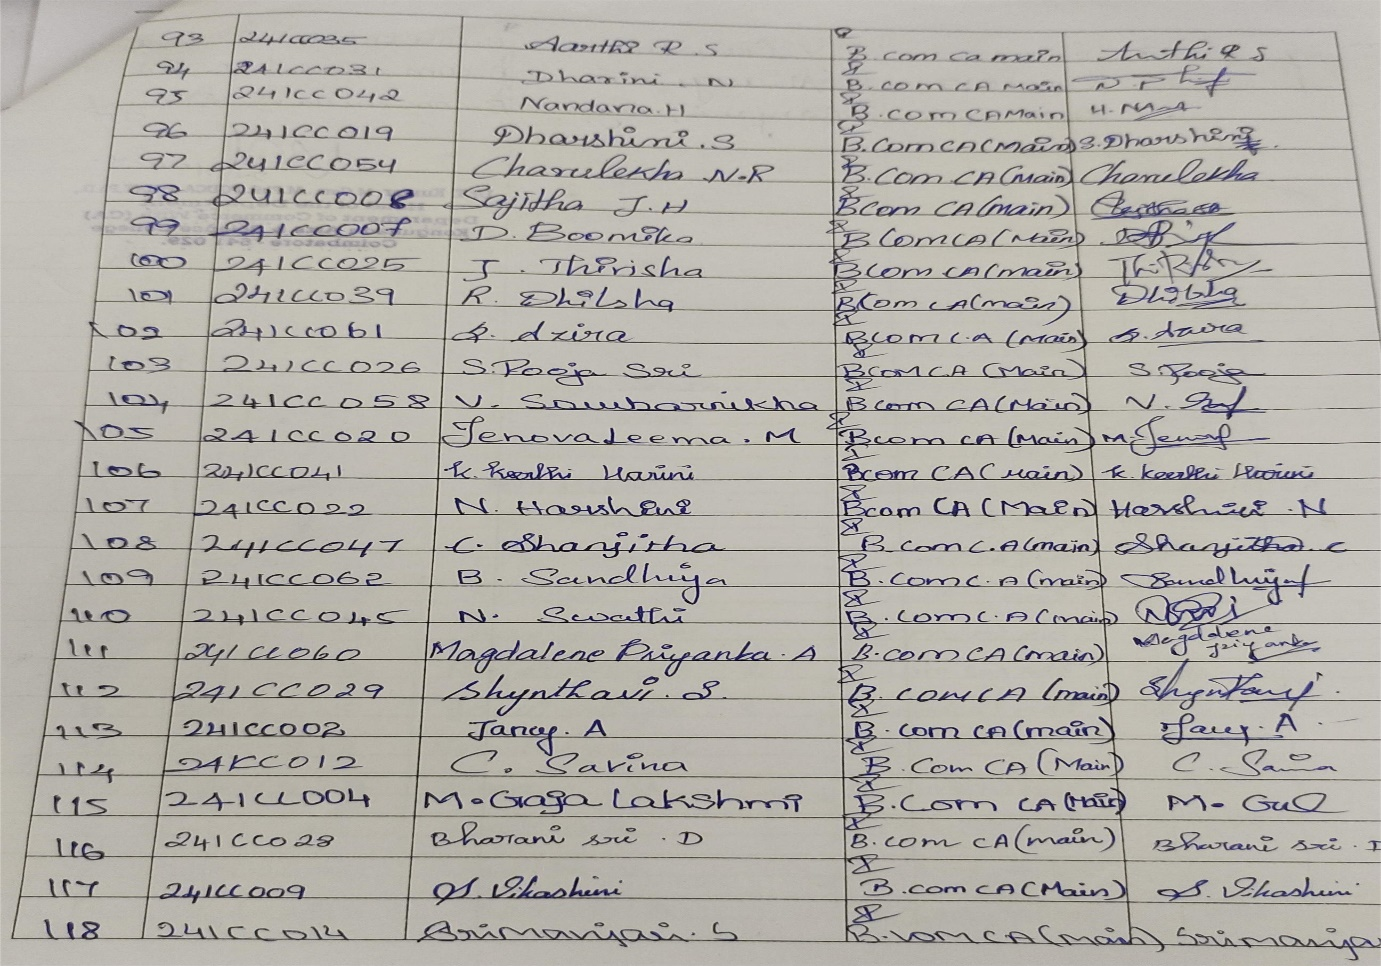 93 241CC035 Aarthi R.S B.com ca main Arthi R S
94 241CC031 Dharini . N B.com CA Main
95 241CC042 Nandana.H B.com CA Main H.
96 241CC019 Dharshini.S B.Com CA(Main) S.Dharshini
97 241CC054 Charulekha N.R B.Com CA(Main) Charulekha
98 241CC008 Sajitha J.H Bcom CA(main)
99 241CC007 D. Boomika B Com CA (Main)
100 241CC025 J. Thirisha BCom CA(main)
101 241CC039 R. Dhilsha BCom CA(main) Dhilsha
102 241CC061 S. Azira BCom C.A (main) S. Azira
103 241CC026 S.Pooja Sri BCom C.A (Main) S.Pooja
104 241CC058 V. Soubarnikha Bcom CA(Main) V.
105 241CC020 Jenova Leema . M Bcom CA (Main) M.
106 241CC041 K. Keerthi Harini Bcom CA (Main) K. Keerthi Harini
107 241CC022 N. Harshini Bcom CA (Main) Harshini .N
108 241CC047 C. Shanjitha B.com C.A(main) Shanjitha. C
109 241CC062 B. Sandhiya B.com C.A (main) Sandhiya
110 241CC045 N. Swathi B.com C.A (main)
111 241CC060 Magdalene Priyanka. A B.com CA (main) Magdalene Priyanka
112 241CC029 Shynthavi. S. B. com CA (main)
113 241CC002 Jancy. A B. com CA (main) Jancy. A
114 241CC012 C. Sarina B. Com CA (Main) C.
115 241CC004 M. Gaja Lakshmi B.Com CA (Main) M.
116 241CC028 Bharani sri . D B. com CA(main) Bharani sri . D
117 241CC009 S. Vikashini B.com CA(Main) S. Vikashini
118 241CC014 Srimanjari. S B.com CA(main) Srimanja